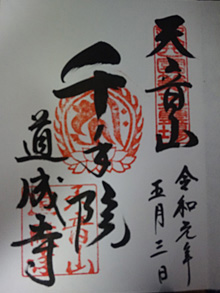 天音山
令和元年
五月三日
千手院
道成寺